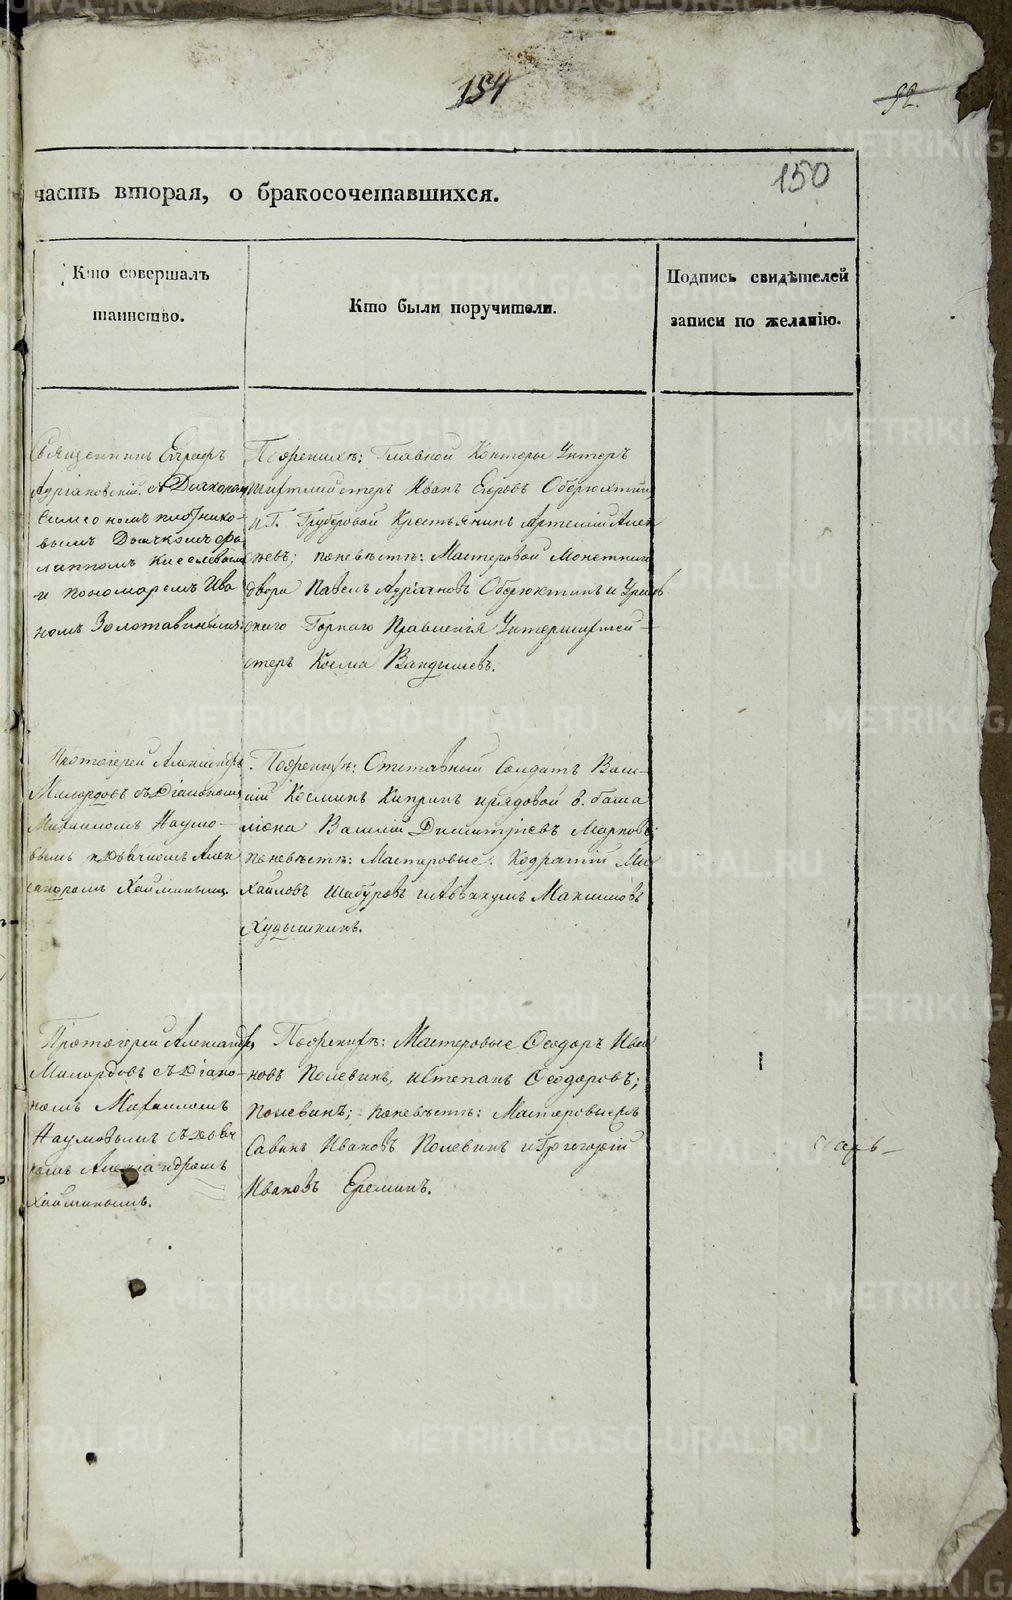 154
92.
150
часть вторая, о бракосочетавшихся.
Кто совершалъ
таинство.
Кто были поручители.
Подпись свидѣтелей
записи по желанію.
Священникъ Евграфъ
Адріановскій съ Діакономъ
Симеономъ Плотнико-
вымъ Дьячкомъ Фи
липпомъ Киселевымъ
и пономаремъ Ива
номъ Золотавинымъ.
По женихѣ: Главной Конторы Унтеръ
шихтмейстеръ Иванъ Егоровъ Оберюхтинъ
и Г. Груберовой Крестьянинъ Артемій Алек
сѣевъ; по невѣстѣ: Мастеровой Монетнаго
двора Павелъ Адріановъ Оберюхтинъ и Ураль
скаго Горнаго Правленія Унтершихтмей-
стеръ Косма Вандышевъ.
Протоіерей Александръ
Милордовъ съ Діакономъ
Михаиломъ Наумо-
вымъ и дьячкомъ Алек
сандромъ Хайминымъ
По женихѣ: Отставный Солдатъ Васи-
лій Косминъ Кипринъ и рядовой 8. бата
ліона Василій Димитріевъ Марковъ;
по невѣстѣ: Мастеровые: Кодратій Ми
хайловъ Шабуровъ и Аввакумъ Максимовъ
Худышкинъ.
Протоіерей Александръ
Милордовъ съ Діако-
номъ Михаиломъ
Наумовымъ съ дьяч
комъ Александромъ
Хайминымъ.
По женихѣ: Мастеровые Ѳеодоръ Ива
новъ Полевинъ, и Степанъ Ѳеодоровъ;
Полевинъ; по невѣстѣ: Мастеровые
Савинъ Ивановъ Полевинъ и Григорій
Ивановъ Ереминъ.
METRIKI.GASO-URAL.RU